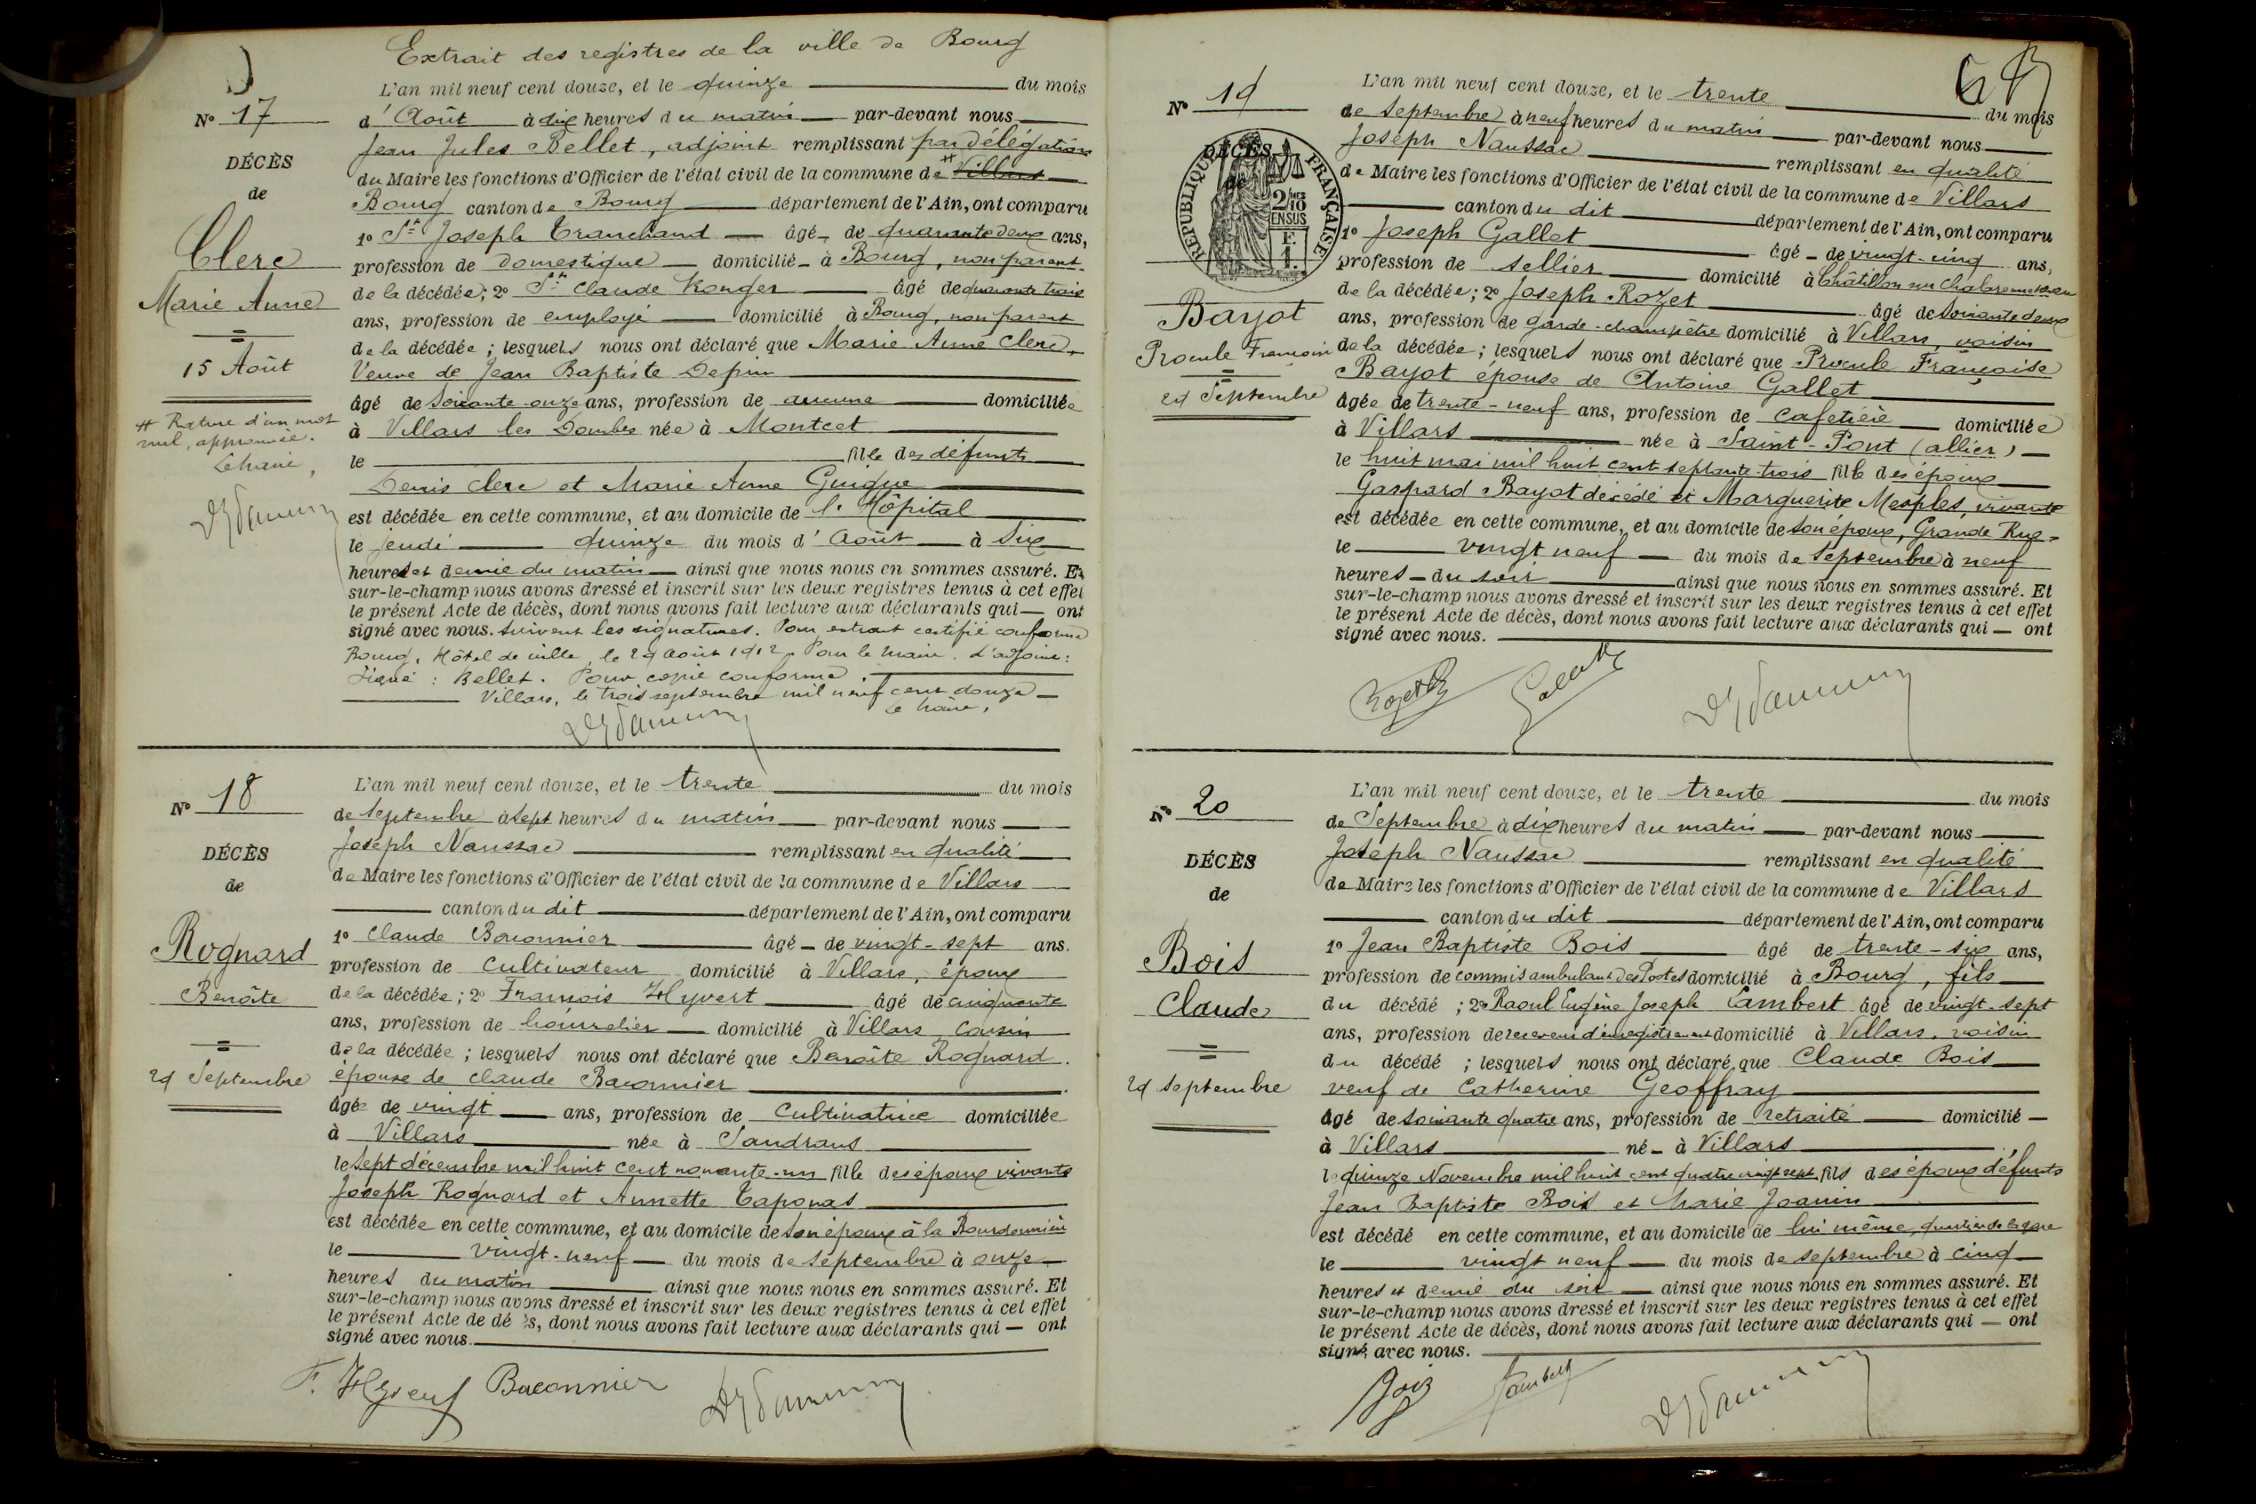 Extrait des registres de la ville de Bourg
L'an mil neuf cent douze, et le quinze du mois
N° 17
d'Août à dix heures du matin par-devant nous
Jean Jules Bellet, adjoint remplissant par délégation
DÉCÈS
du Maire les fonctions d'Officier de l'état civil de la commune de # Villars
de
Bourg canton de Bourg département de l'Ain, ont comparu
1° St Joseph Tranchand âgé de quarante deux ans,
Clerc
profession de domestique domicilié à Bourg, non parent
Marie Anne
de la décédée; 2° St Claude Konger âgé de quarante trois
ans, profession de employé domicilié à Bourg, non parent
de la décédée; lesquels nous ont déclaré que Marie Anne Clerc,
15 Août
Veuve de Jean Baptiste Depin
âgé de soixante onze ans, profession de aucune domiciliée
# Rature d'un mot
nul, approuvée.
à Villars les Dombes née à Montcet
Le maire,
le fille des défunts
Denis Clerc et Marie Anne Guigue
est décédée en cette commune, et au domicile de l'Hôpital
le jeudi quinze du mois d'Août à six
heures et demie du matin ainsi que nous nous en sommes assuré. Et
sur-le-champ nous avons dressé et inscrit sur les deux registres tenus à cet effet
le présent Acte de décès, dont nous avons fait lecture aux déclarants qui ont
signé avec nous. Suivent les signatures. Pour extrait certifié conforme
Bourg, Hôtel de ville, le 29 août 1912. Pour le Maire. L'adjoint:
Signé: Bellet. Pour copie conforme.
Villars, le trois septembre mil neuf cent douze
Le Maire,
N° 18
L'an mil neuf cent douze, et le trente du mois
de septembre à sept heures du matin par-devant nous
Joseph Naussac remplissant en qualité
DÉCÈS
de Maire les fonctions d'Officier de l'état civil de la commune de Villars
de
canton du dit département de l'Ain, ont comparu
Rognard
1° Claude Baconnier âgé de vingt-sept ans.
profession de cultivateur domicilié à Villars, époux
Benoîte
de la décédée; 2° François Hyvert âgé de cinquante
ans, profession de bourrelier domicilié à Villars cousin
de la décédée; lesquels nous ont déclaré que Benoîte Rognard
29 Septembre
épouse de Claude Baconnier
âgée de vingt ans, profession de cultivatrice domiciliée
à Villars née à Sandrans
le sept décembre mil huit cent nonante-un fille des époux vivants
Joseph Rognard et Annette Taponas
est décédée en cette commune, et au domicile de son époux à la Bourdonnière
le vingt-neuf du mois de septembre à onze
heures du matin ainsi que nous nous en sommes assuré. Et
sur-le-champ nous avons dressé et inscrit sur les deux registres tenus à cet effet
le présent Acte de dé s, dont nous avons fait lecture aux déclarants qui ont
signé avec nous.
F. Hyvert Baconnier
N° 19
L'an mil neuf cent douze, et le trente du mois
de septembre à neuf heures du matin par-devant nous
DÉCÈS
Joseph Naussac remplissant en qualité
de
de Maire les fonctions d'Officier de l'état civil de la commune de Villars
RÉPUBLIQUE FRANÇAISE
canton du dit département de l'Ain, ont comparu
1° Joseph Gallet âgé de vingt-cinq ans,
profession de sellier domicilié à Châtillon sur Chalaronne
de la décédée; 2° Joseph Rozet âgé de soixante deux
Bayot
ans, profession de garde-champêtre domicilié à Villars, voisin
Procule Françoise
de la décédée; lesquels nous ont déclaré que Procule Françoise
Bayot épouse de Antoine Gallet
29 Septembre
âgée de trente-neuf ans, profession de cafetière domiciliée
à Villars née à Saint-Pont (allier)
le huit mai mil huit cent septante trois fille des époux
Gaspard Bayot décédé et Marguerite Mesples, vivante
est décédée en cette commune, et au domicile de son époux, Grande Rue
le vingt neuf du mois de septembre à neuf
heures du soir ainsi que nous nous en sommes assuré. Et
sur-le-champ nous avons dressé et inscrit sur les deux registres tenus à cet effet
le présent Acte de décès, dont nous avons fait lecture aux déclarants qui ont
signé avec nous.
Rozet Gallet
N° 20
L'an mil neuf cent douze, et le trente du mois
de Septembre à dix heures du matin par-devant nous
Joseph Naussac remplissant en qualité
DÉCÈS
de Maire les fonctions d'Officier de l'état civil de la commune de Villars
de
canton du dit département de l'Ain, ont comparu
Bois
1° Jean Baptiste Bois âgé de trente-six ans,
profession de commis ambulant des Postes domicilié à Bourg, fils
Claude
du décédé; 2° Raoul Eugène Joseph Lambert âgé de vingt-sept
ans, profession de receveur d'enregistrement domicilié à Villars, voisin
du décédé; lesquels nous ont déclaré que Claude Bois
29 septembre
veuf de Catherine Geoffray
âgé de soixante quatre ans, profession de retraité domicilié
à Villars né à Villars
le quinze Novembre mil huit cent quatre vingt sept fils des époux défunts
Jean Baptiste Bois et Marie Joanin
est décédé en cette commune, et au domicile de lui même, quartier de la gare
le vingt neuf du mois de septembre à cinq
heures et demie du soir ainsi que nous nous en sommes assuré. Et
sur-le-champ nous avons dressé et inscrit sur les deux registres tenus à cet effet
le présent Acte de décès, dont nous avons fait lecture aux déclarants qui ont
signé avec nous.
Bois Lambert